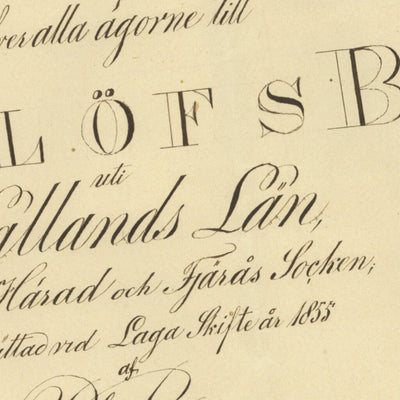 över alla ägorne till
LÖFSB
uti
Hallands Län,
Härad och Fjärås Socken;
vid Laga Skifte år 1855
af